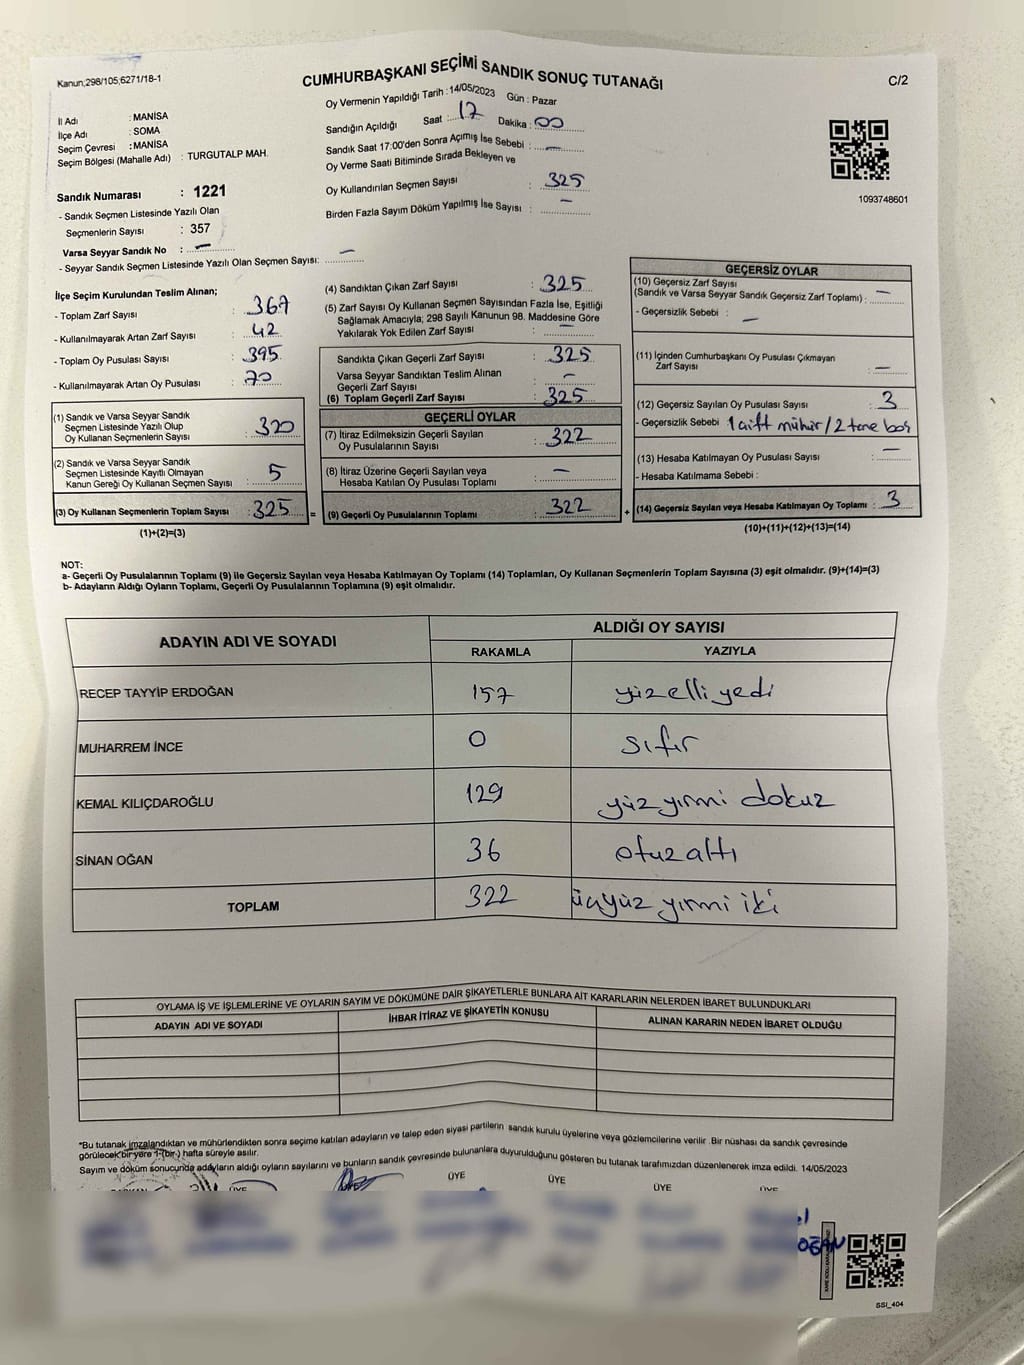 Kanun;298/105;6271/18-1
CUMHURBAŞKANI SEÇİMİ SANDIK SONUÇ TUTANAĞI
C/2
İl Adı : MANİSA
İlçe Adı : SOMA
Seçim Çevresi : MANİSA
Seçim Bölgesi (Mahalle Adı) : TURGUTALP MAH.
Sandık Numarası : 1221
- Sandık Seçmen Listesinde Yazılı Olan
Seçmenlerin Sayısı : 357
Varsa Seyyar Sandık No : —
- Seyyar Sandık Seçmen Listesinde Yazılı Olan Seçmen Sayısı: —
Oy Vermenin Yapıldığı Tarih : 14/05/2023 Gün : Pazar
Sandığın Açıldığı Saat : 17 Dakika : 00
Sandık Saat 17:00'den Sonra Açımış İse Sebebi : —
Oy Verme Saati Bitiminde Sırada Bekleyen ve
Oy Kullandırılan Seçmen Sayısı : 325
Birden Fazla Sayım Döküm Yapılmış İse Sayısı : —
1093748601
İlçe Seçim Kurulundan Teslim Alınan;
- Toplam Zarf Sayısı : 367
- Kullanılmayarak Artan Zarf Sayısı : 42
- Toplam Oy Pusulası Sayısı : 395
- Kullanılmayarak Artan Oy Pusulası : 70
(1) Sandık ve Varsa Seyyar Sandık
Seçmen Listesinde Yazılı Olup
Oy Kullanan Seçmenlerin Sayısı : 320
(2) Sandık ve Varsa Seyyar Sandık
Seçmen Listesinde Kayıtlı Olmayan
Kanun Gereği Oy Kullanan Seçmen Sayısı : 5
(3) Oy Kullanan Seçmenlerin Toplam Sayısı : 325
(1)+(2)=(3)
(4) Sandıktan Çıkan Zarf Sayısı : 325
(5) Zarf Sayısı Oy Kullanan Seçmen Sayısından Fazla İse, Eşitliği
Sağlamak Amacıyla; 298 Sayılı Kanunun 98. Maddesine Göre
Yakılarak Yok Edilen Zarf Sayısı : —
Sandıkta Çıkan Geçerli Zarf Sayısı : 325
Varsa Seyyar Sandıktan Teslim Alınan
Geçerli Zarf Sayısı : —
(6) Toplam Geçerli Zarf Sayısı : 325
GEÇERLİ OYLAR
(7) İtiraz Edilmeksizin Geçerli Sayılan
Oy Pusulasının Sayısı : 322
(8) İtiraz Üzerine Geçerli Sayılan veya
Hesaba Katılan Oy Pusulası Toplamı : —
= (9) Geçerli Oy Pusulalarının Toplamı : 322 +
GEÇERSİZ OYLAR
(10) Geçersiz Zarf Sayısı
(Sandık ve Varsa Seyyar Sandık Geçersiz Zarf Toplamı) : —
- Geçersizlik Sebebi : —
(11) İçinden Cumhurbaşkanı Oy Pusulası Çıkmayan
Zarf Sayısı : —
(12) Geçersiz Sayılan Oy Pusulası Sayısı : 3
- Geçersizlik Sebebi 1 çift mühür / 2 tane boş
(13) Hesaba Katılmayan Oy Pusulası Sayısı : —
- Hesaba Katılmama Sebebi :
(14) Geçersiz Sayılan veya Hesaba Katılmayan Oy Toplamı : 3
(10)+(11)+(12)+(13)=(14)
NOT:
a- Geçerli Oy Pusulalarının Toplamı (9) ile Geçersiz Sayılan veya Hesaba Katılmayan Oy Toplamı (14) Toplamları, Oy Kullanan Seçmenlerin Toplam Sayısına (3) eşit olmalıdır. (9)+(14)=(3)
b- Adayların Aldığı Oyların Toplamı, Geçerli Oy Pusulalarının Toplamına (9) eşit olmalıdır.
ADAYIN ADI VE SOYADI ALDIĞI OY SAYISI
RAKAMLA YAZIYLA
RECEP TAYYİP ERDOĞAN 157 yüzelliyedi
MUHARREM İNCE 0 sıfır
KEMAL KILIÇDAROĞLU 129 yüz yırmi dokuz
SİNAN OĞAN 36 otuzaltı
TOPLAM 322 üçyüz yırmi iki
OYLAMA İŞ VE İŞLEMLERİNE VE OYLARIN SAYIM VE DÖKÜMÜNE DAİR ŞİKAYETLERLE BUNLARA AİT KARARLARIN NELERDEN İBARET BULUNDUKLARI
ADAYIN ADI VE SOYADI İHBAR İTİRAZ VE ŞİKAYETİN KONUSU ALINAN KARARIN NEDEN İBARET OLDUĞU
*Bu tutanak imzalandıktan ve mühürlendikten sonra seçime katılan adayların ve talep eden siyasi partilerin sandık kurulu üyelerine veya gözlemcilerine verilir .Bir nüshası da sandık çevresinde
görülecek bir yere 1-(bir-) hafta süreyle asılır.
Sayım ve döküm sonucunda adayların aldığı oyların sayılarını ve bunların sandık çevresinde bulunanlara duyurulduğunu gösteren bu tutanak tarafımızdan düzenlenerek imza edildi. 14/05/2023
ÜYE ÜYE ÜYE ÜYE ÜYE
SSI_404